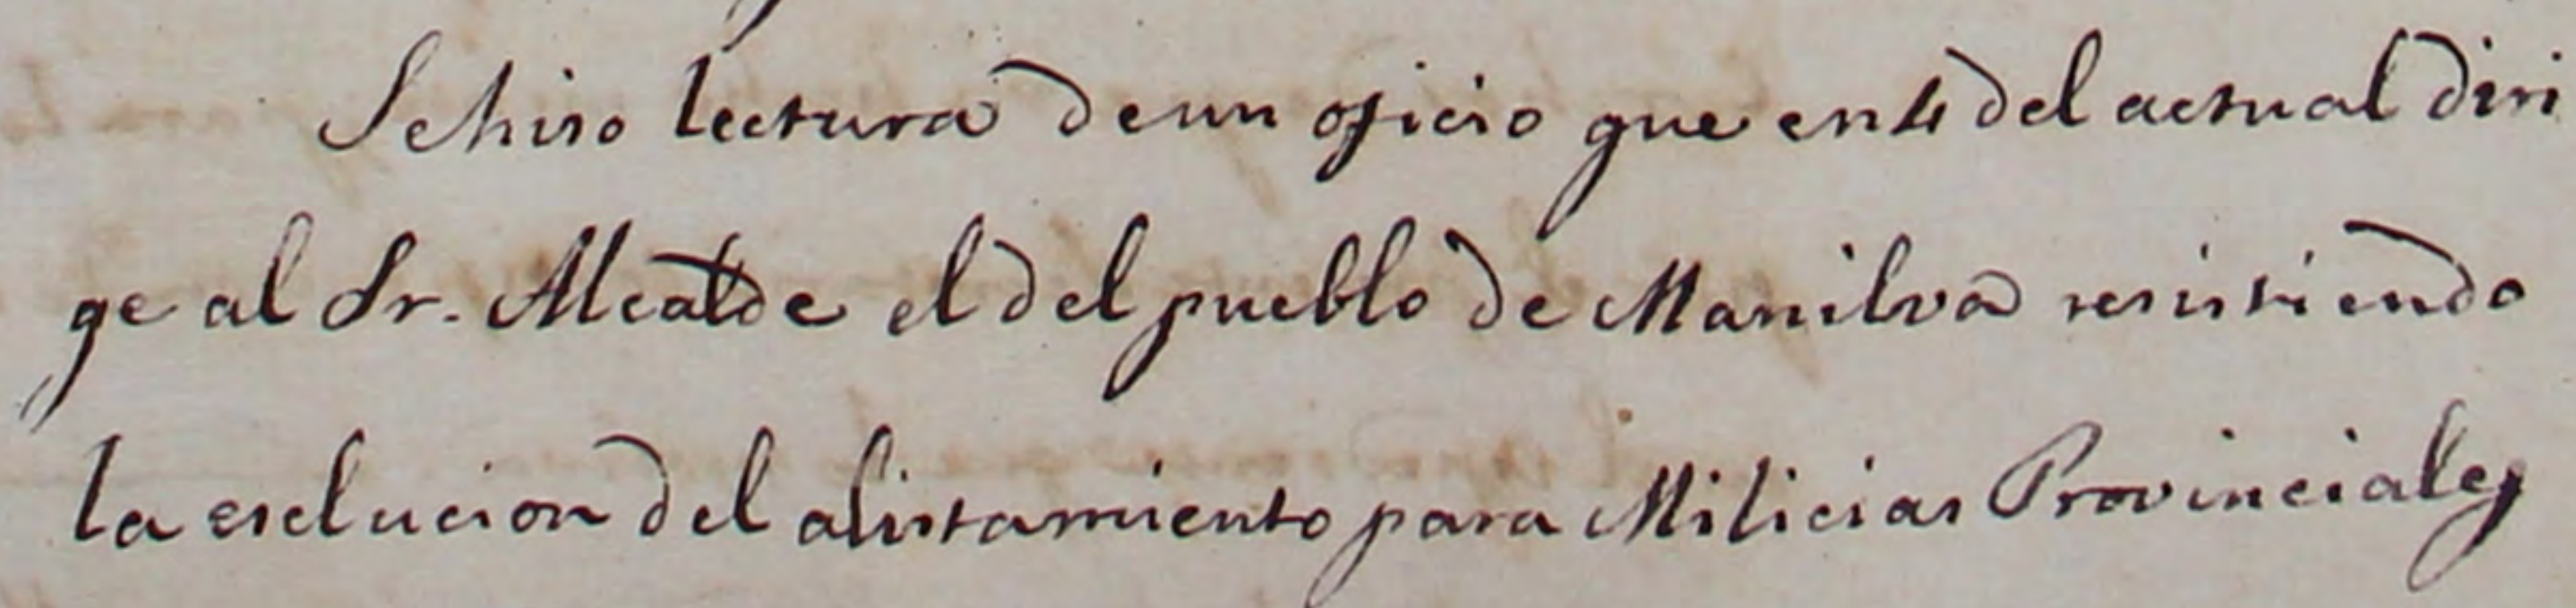 Se hiso lectura de un oficio que en 4 del actual diri
ge al Sr. Alcalde el del pueblo de Manilva resistiendo
la esclucion del alistamiento para Milicias Provinciales